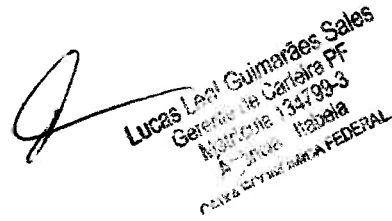 Lucas Leal Guimarães Sales
Gerente de Carteira PF
Matrícula 134799-3
Agência Itabela
CAIXA ECONÔMICA FEDERAL